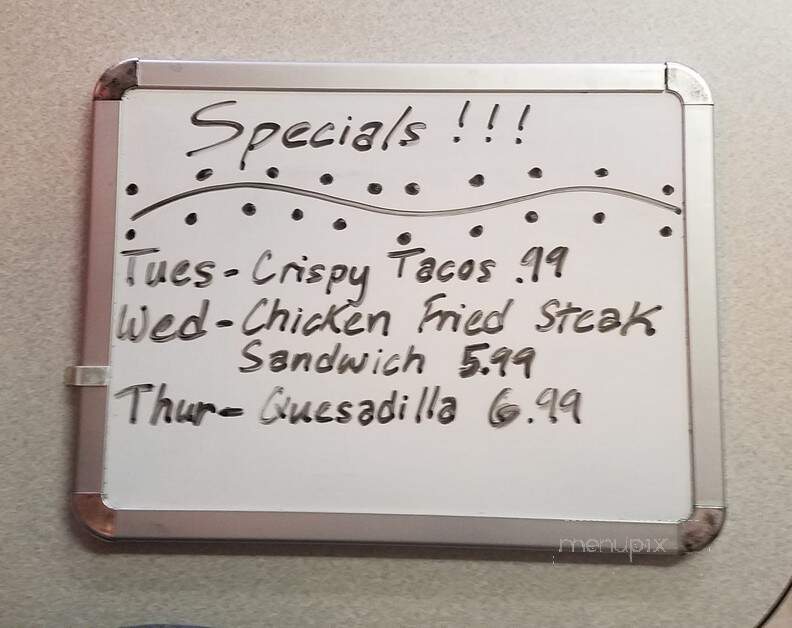 Specials!!!
Tues- Crispy Tacos .99
Wed- Chicken Fried Steak
Sandwich 5.99
Thur- Quesadilla 6.99
menupix